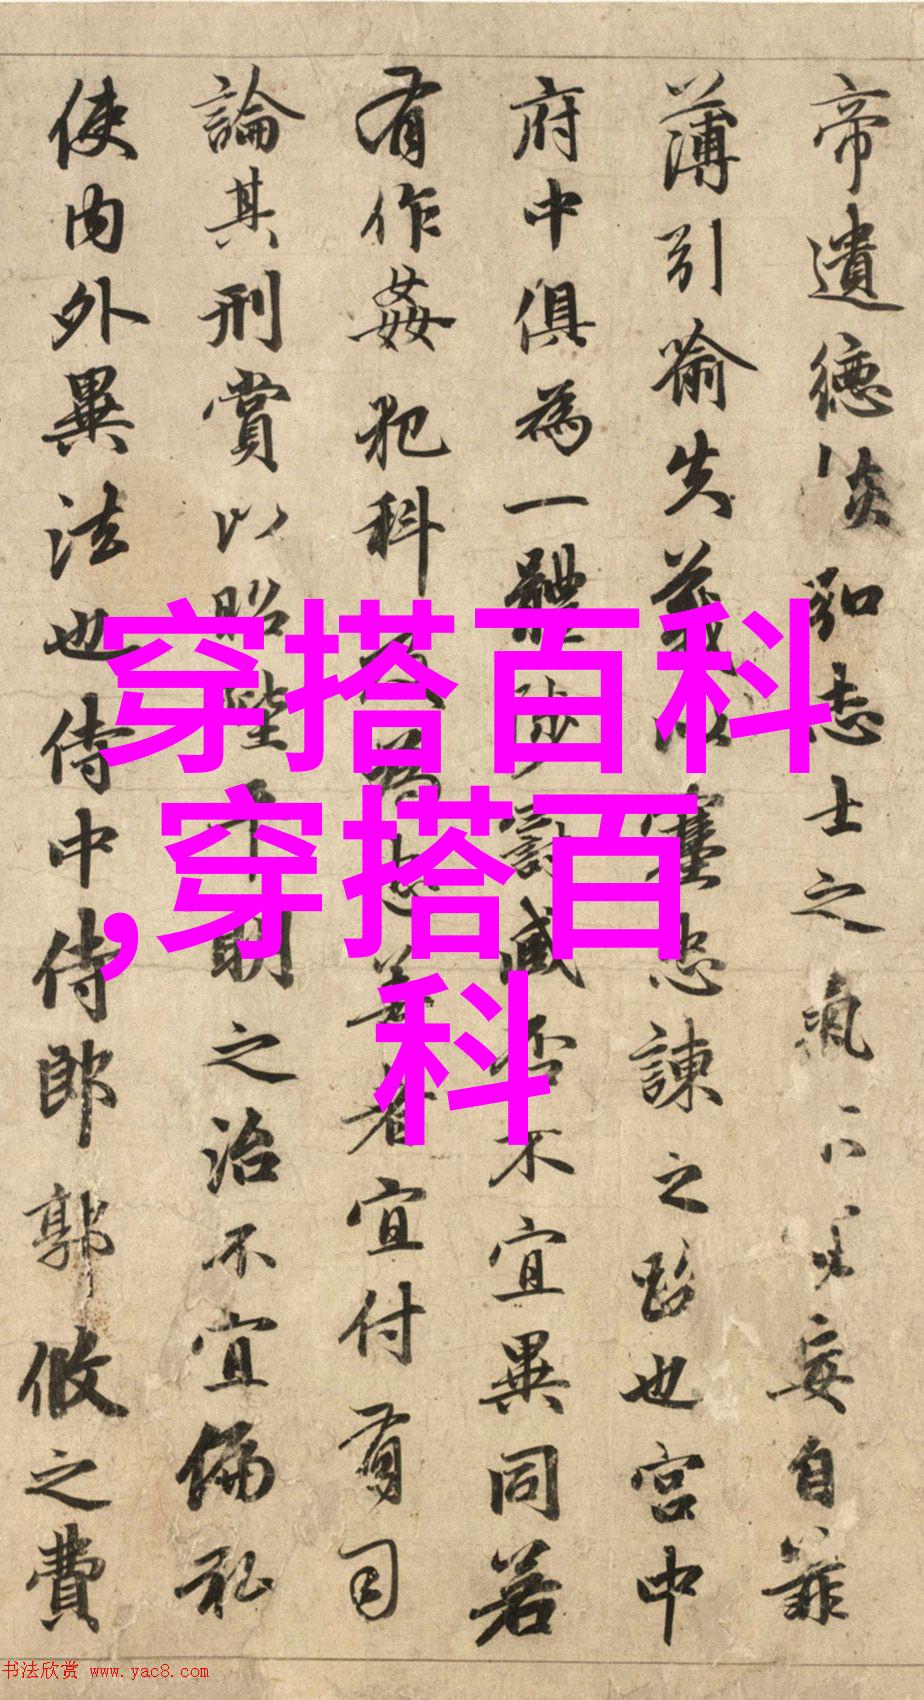 穿搭百科
,穿搭百
科
帝遺德恢弘志士之氣不妄自菲
薄引喻失義以塞忠諫之路也宮中
府中俱為一體陟罰臧否不宜異同若
有作姦犯科及為忠善者宜付有司
論其刑賞以昭陛平明之治不宜偏私
使內外異法也侍中侍郎郭攸之費
书法欣赏 www.yac8.com